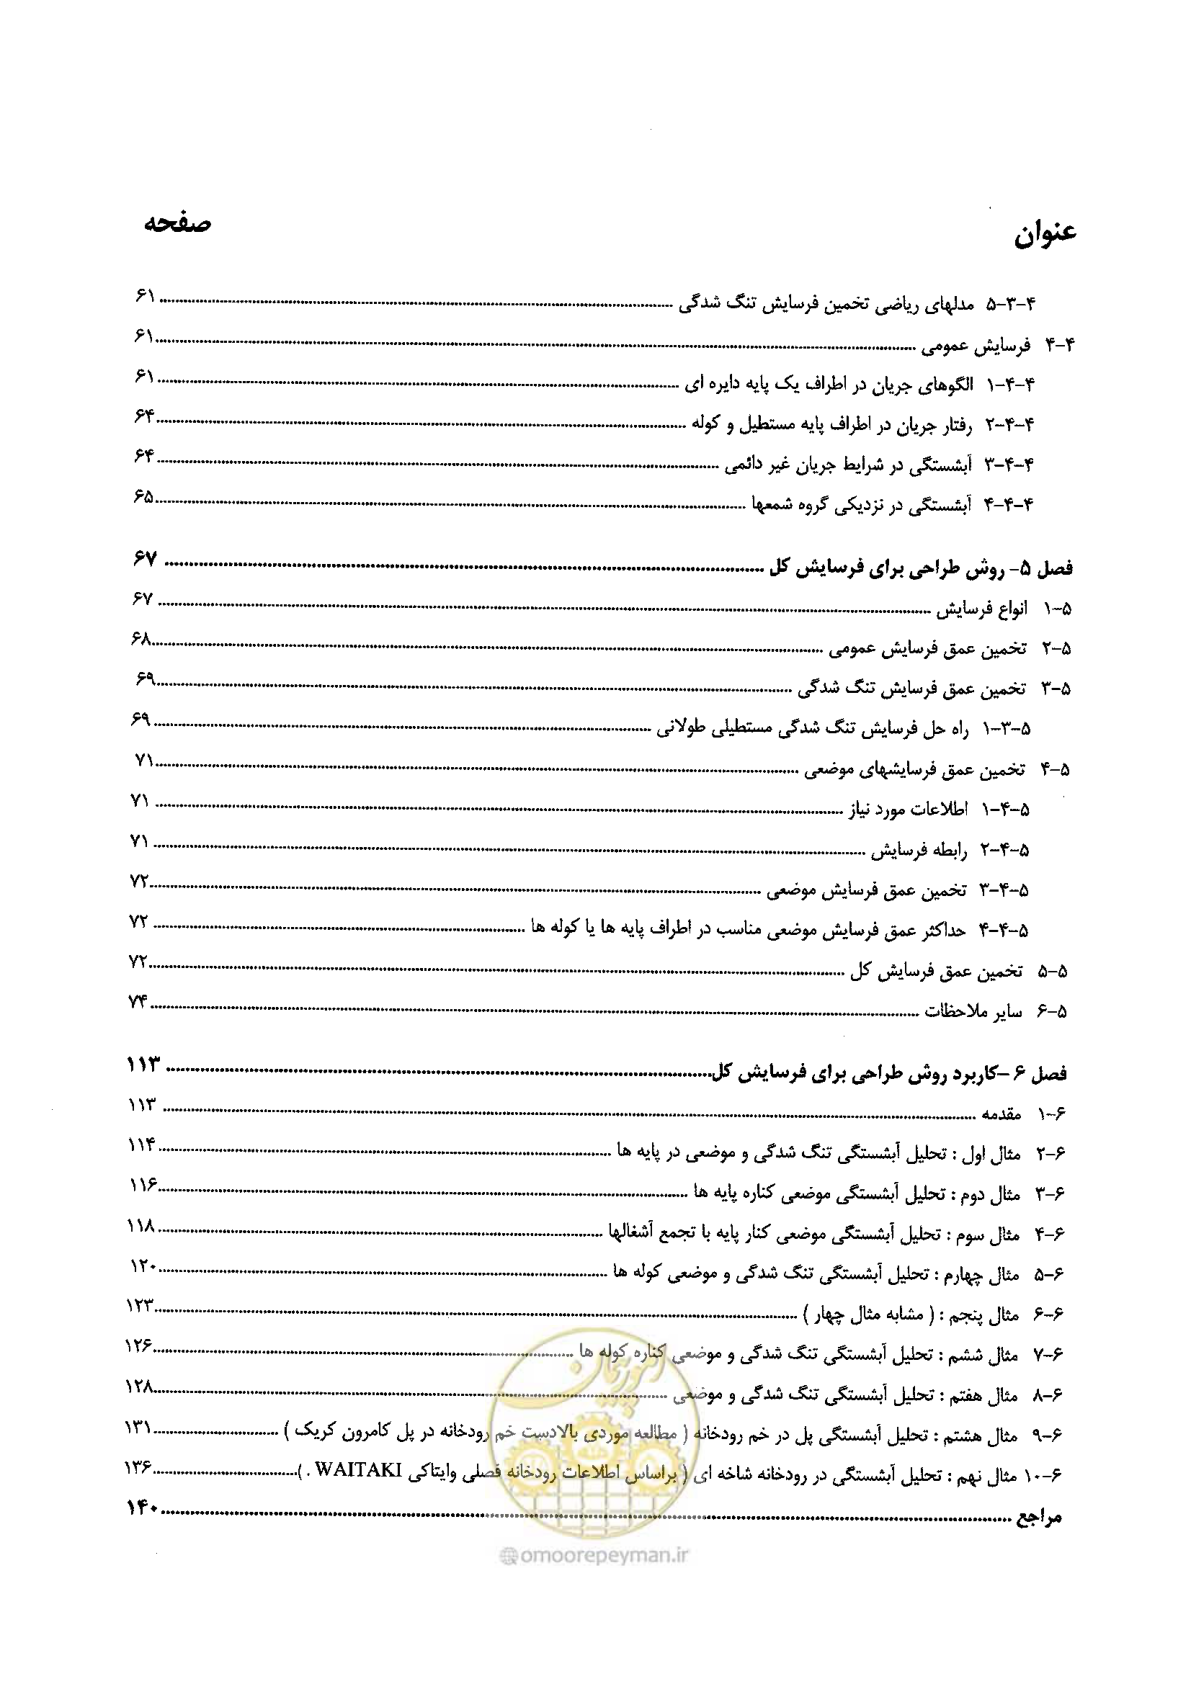 عنوان صفحه
۴-۳-۵ مدلهای ریاضی تخمین فرسایش تنگ شدگی ........ ۶۱
۴-۴ فرسایش عمومی ........ ۶۱
۴-۴-۱ الگوهای جریان در اطراف یک پایه دایره ای ........ ۶۱
۴-۴-۲ رفتار جریان در اطراف پایه مستطیل و کوله ........ ۶۴
۴-۴-۳ آبشستگی در شرایط جریان غیر دائمی ........ ۶۴
۴-۴-۴ آبشستگی در نزدیکی گروه شمعها ........ ۶۵
فصل ۵- روش طراحی برای فرسایش کل ........ ۶۷
۵-۱ انواع فرسایش ........ ۶۷
۵-۲ تخمین عمق فرسایش عمومی ........ ۶۸
۵-۳ تخمین عمق فرسایش تنگ شدگی ........ ۶۹
۵-۳-۱ راه حل فرسایش تنگ شدگی مستطیلی طولانی ........ ۶۹
۵-۴ تخمین عمق فرسایشهای موضعی ........ ۷۱
۵-۴-۱ اطلاعات مورد نیاز ........ ۷۱
۵-۴-۲ رابطه فرسایش ........ ۷۱
۵-۴-۳ تخمین عمق فرسایش موضعی ........ ۷۲
۵-۴-۴ حداکثر عمق فرسایش موضعی مناسب در اطراف پایه ها یا کوله ها ........ ۷۲
۵-۵ تخمین عمق فرسایش کل ........ ۷۲
۵-۶ سایر ملاحظات ........ ۷۴
فصل ۶ -کاربرد روش طراحی برای فرسایش کل ........ ۱۱۳
۶-۱ مقدمه ........ ۱۱۳
۶-۲ مثال اول : تحلیل آبشستگی تنگ شدگی و موضعی در پایه ها ........ ۱۱۴
۶-۳ مثال دوم : تحلیل آبشستگی موضعی کناره پایه ها ........ ۱۱۶
۶-۴ مثال سوم : تحلیل آبشستگی موضعی کنار پایه با تجمع آشغالها ........ ۱۱۸
۶-۵ مثال چهارم : تحلیل آبشستگی تنگ شدگی و موضعی کوله ها ........ ۱۲۰
۶-۶ مثال پنجم : ( مشابه مثال چهار ) ........ ۱۲۳
۶-۷ مثال ششم : تحلیل آبشستگی تنگ شدگی و موضعی کناره کوله ها ........ ۱۲۶
۶-۸ مثال هفتم : تحلیل آبشستگی تنگ شدگی و موضعی ........ ۱۲۸
۶-۹ مثال هشتم : تحلیل آبشستگی پل در خم رودخانه ( مطالعه موردی بالادست خم رودخانه در پل کامرون کریک ) ........ ۱۳۱
۶-۱۰ مثال نهم : تحلیل آبشستگی در رودخانه شاخه ای ( براساس اطلاعات رودخانه فصلی وایتاکی WAITAKI . ) ........ ۱۳۶
مراجع ........ ۱۴۰
امور پیمان
@omoorepeyman.ir